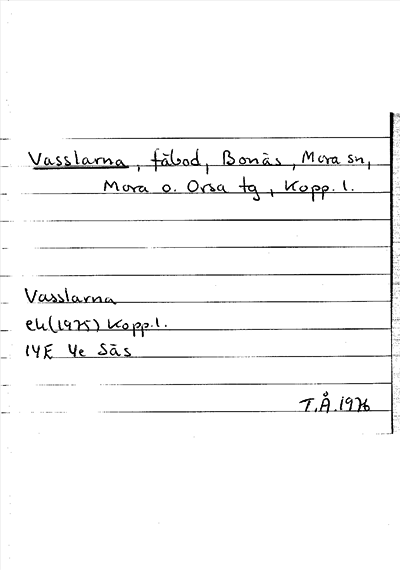 Vasslarna, fäbod, Bonäs, Mora sn,
Mora o. Orsa tg, Kopp. l.
Vasslarna
ek(1975) Kopp.l.
14E 4e Sås
T.Å.1976